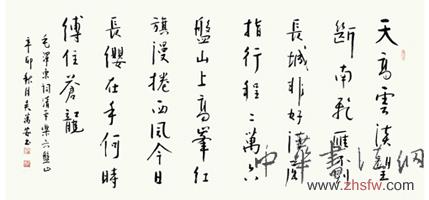 天高雲淡望
斷南飛雁不到
長城非好漢屈
指行程二萬六
盤山上高峯紅
旗漫捲西風今日
長纓在手何時
縛住蒼龍
毛澤東詞清平樂六盤山
辛卯秋月
中華書法網
www.zhsfw.com